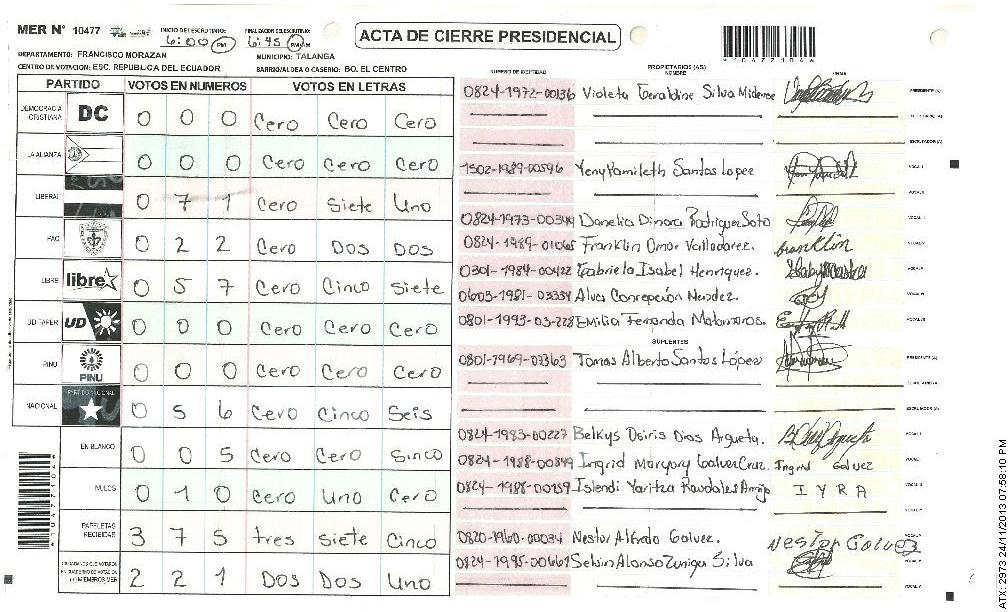 MER N° 10477 INICIO DEL ESCRUTINIO: 6:00 PM FINALIZACION DEL ESCRUTINIO: 6:45 PM
ACTA DE CIERRE PRESIDENCIAL
DEPARTAMENTO: FRANCISCO MORAZAN MUNICIPIO: TALANGA
CENTRO DE VOTACION: ESC. REPUBLICA DEL ECUADOR BARRIO/ALDEA O CASERIO: BO. EL CENTRO
PARTIDO VOTOS EN NUMEROS VOTOS EN LETRAS
DEMOCRACIA CRISTIANA DC 0 0 0 Cero Cero Cero
LA ALIANZA 0 0 0 Cero Cero Cero
LIBERAL 0 7 1 Cero Siete Uno
PAC 0 2 2 Cero Dos Dos
LIBRE libre 0 5 7 Cero Cinco Siete
UD FAPER UD 0 0 0 Cero Cero Cero
PINU PINU 0 0 0 Cero Cero Cero
NACIONAL 0 5 6 Cero Cinco Seis
EN BLANCO 0 0 5 Cero Cero Sinco
NULOS 0 1 0 Cero Uno Cero
PAPELETAS RECIBIDAS 3 7 5 tres Siete Cinco
CIUDADANOS QUE VOTARON EN CUADERNO DE VOTACION (+) MIEMBROS MER 2 2 1 Dos Dos Uno
NUMERO DE IDENTIDAD PROPIETARIOS (AS) NOMBRE FIRMA
0824-1972-00136 Violeta Geraldine Silva PRESIDENTE (A)
SECRETARIO (A)
ESCRUTADOR (A)
1502-1989-00596 Yeny Yamileth Santos Lopez VOCAL I
VOCAL II
0824-1973-00344 Danelia Dinora Rodriguez Soto
0824-1989-01065 Franklin Omar Valladarez. Franklin
0301-1984-00422 Gabriela Isabel Henriquez.
0603-1981-03334 Alva Concepción Mendez.
0801-1993-03-228 Emilia Fernanda Matamoros.
SUPLENTES
0801-1969-07363 Tomas Alberto Santos López PRESIDENTE (A)
SECRETARIO (A)
ESCRUTADOR (A)
0824-1983-00227 Belkys Osiris Dias Argueta.
0824-1988-00849 Ingrid Maryory Galvez Cruz. Ingrid Galvez
0824-1988-00259 Islendi Yaritza Raudales IYRA
0820-1960-00034 Nestor Alfredo Galvez. Nestor Galvez
0824-1995-00661 Selvin Alonso Zuniga Silva
ATX: 2973 24/11/2013 07:58:10 PM